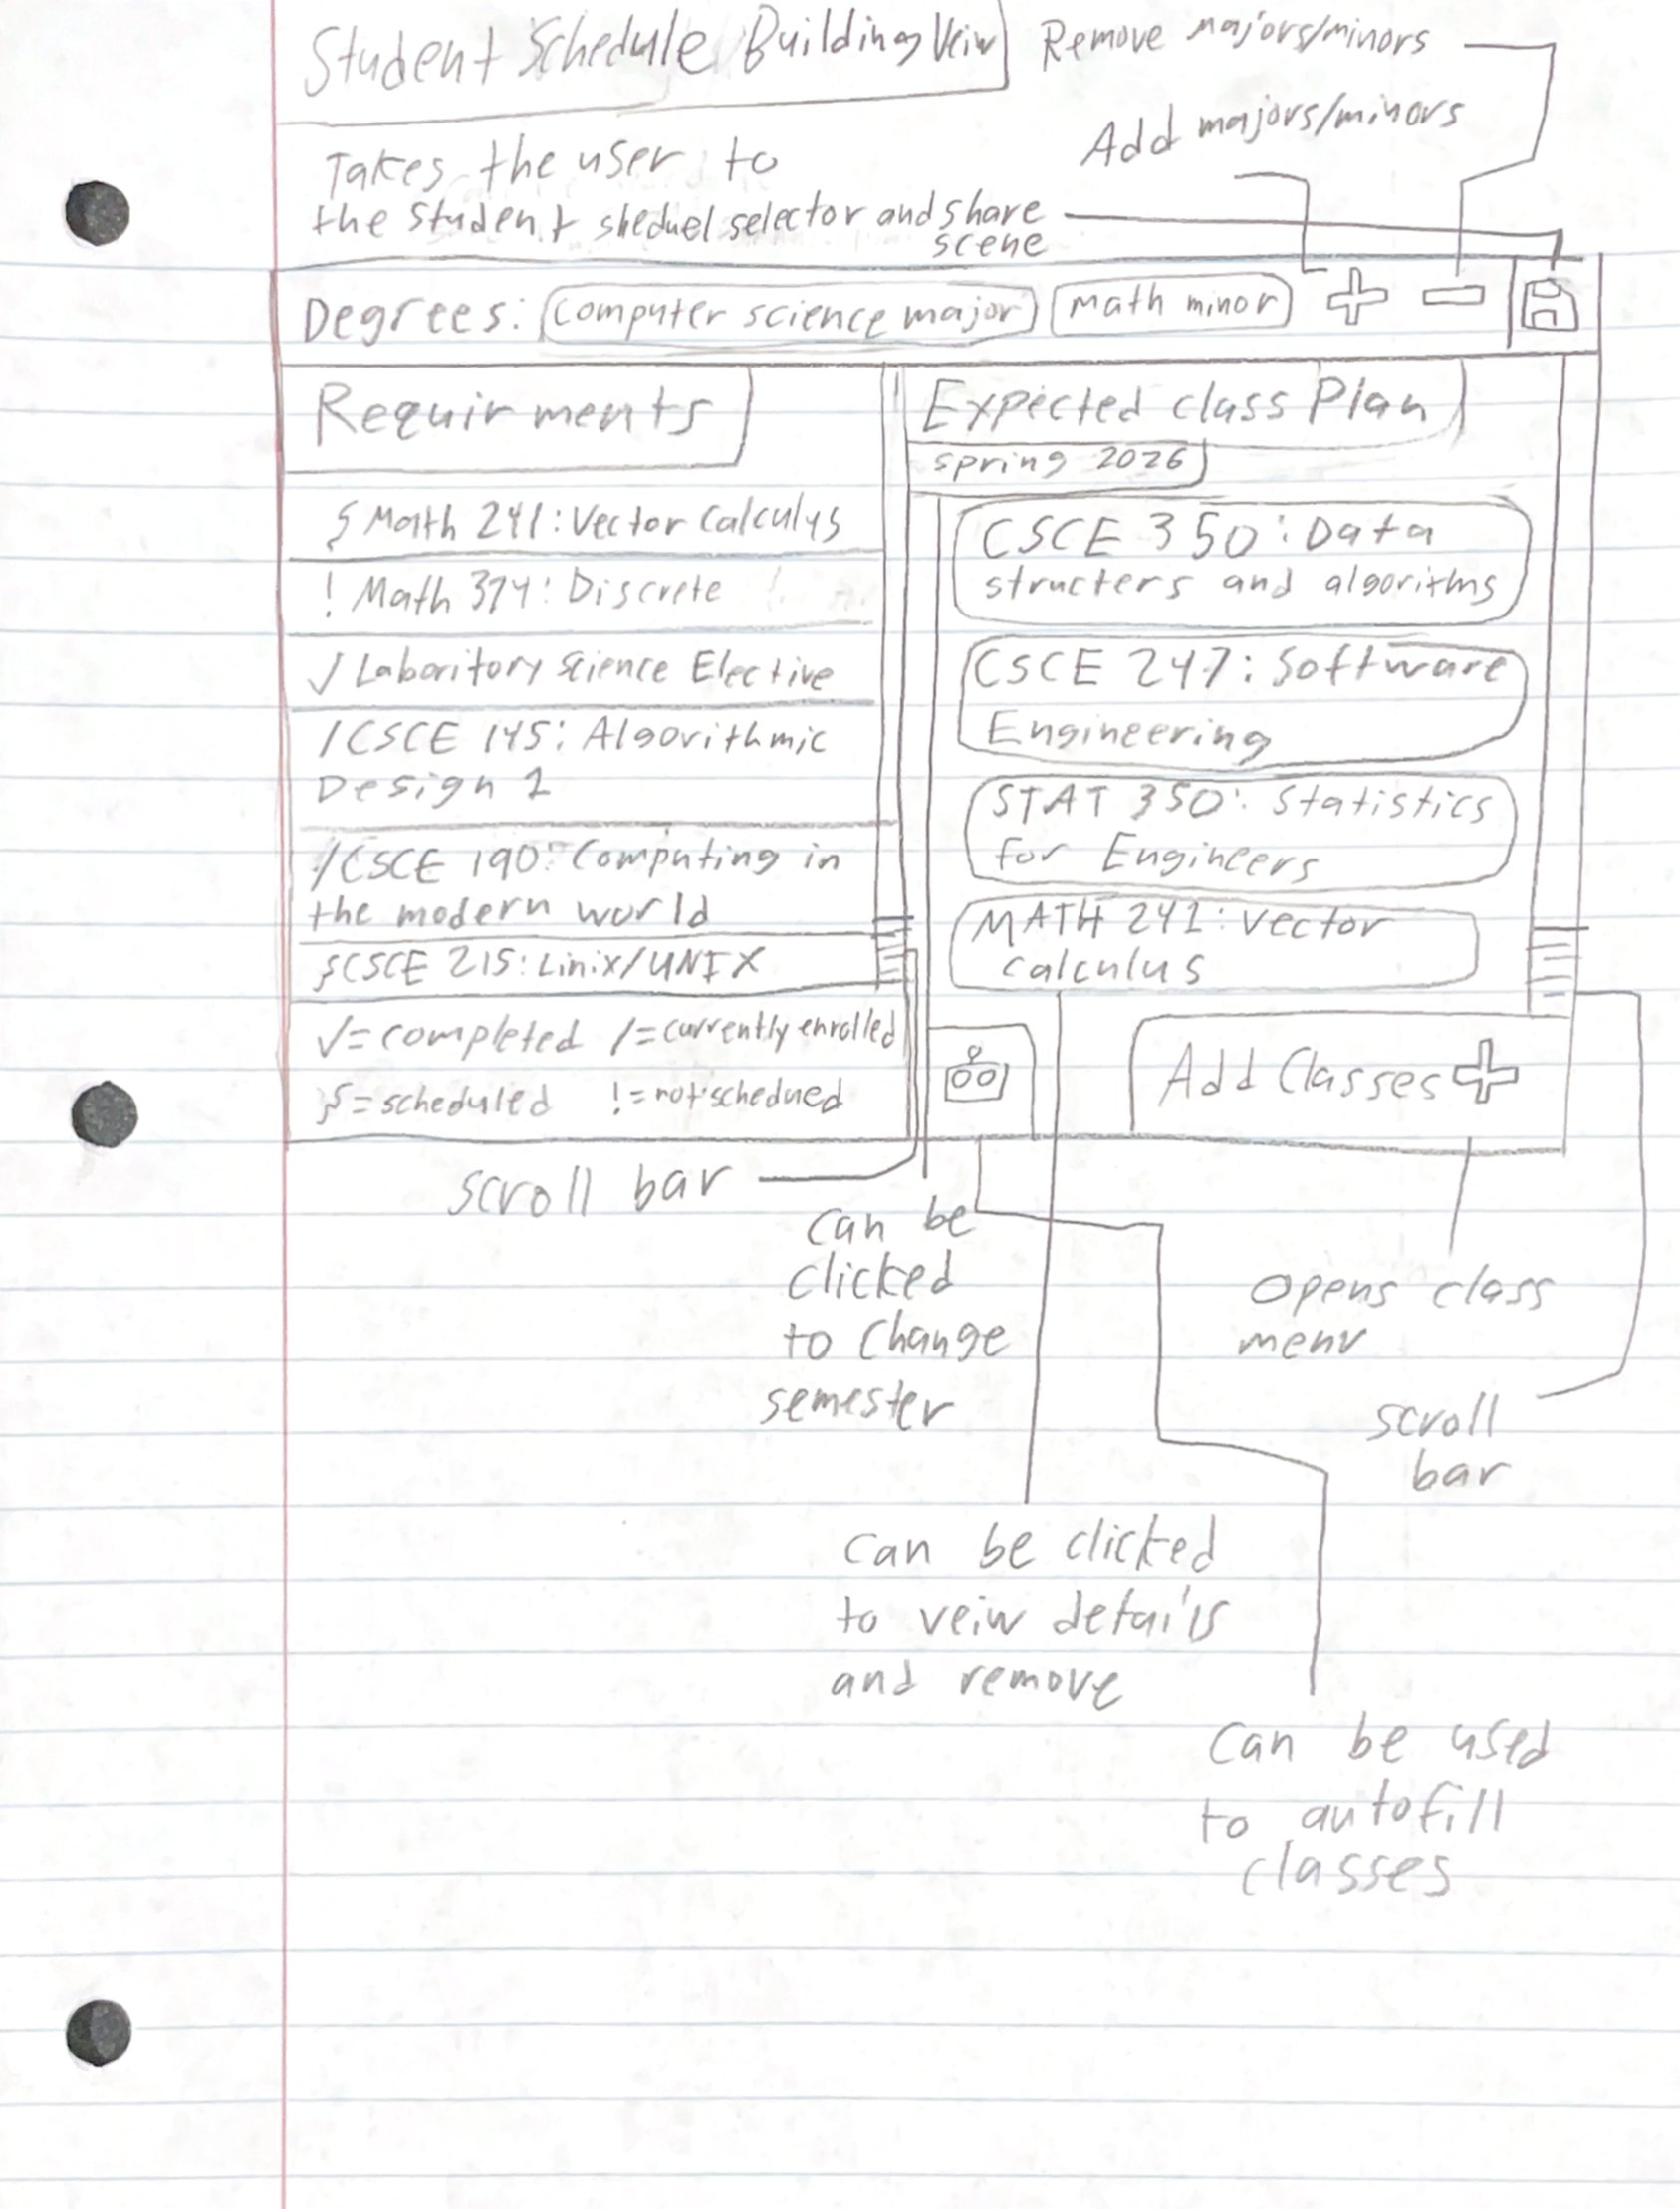 Student Schedule Building Veiw
Remove majors/minors
Add majors/minors
Takes the user to
the student sheduel selector and share
scene
Degrees: Computer science major Math minor
Requirments
§ Math 241: Vector Calculus
! Math 374: Discrete
√ Laboritory Science Elective
/ CSCE 145: Algorithmic
Design 1
/ CSCE 190: Computing in
the modern world
§ CSCE 215: Linix/UNIX
√= completed /= currently enrolled
§= scheduled != not schedued
Expected class Plan
spring 2026
CSCE 350: Data
structers and algorithms
CSCE 247: Software
Engineering
STAT 350: Statistics
for Engineers
MATH 241: Vector
calculus
Add Classes
scroll bar
can be
clicked
to change
semester
opens class
menu
scroll
bar
can be clicked
to veiw details
and remove
can be used
to autofill
classes